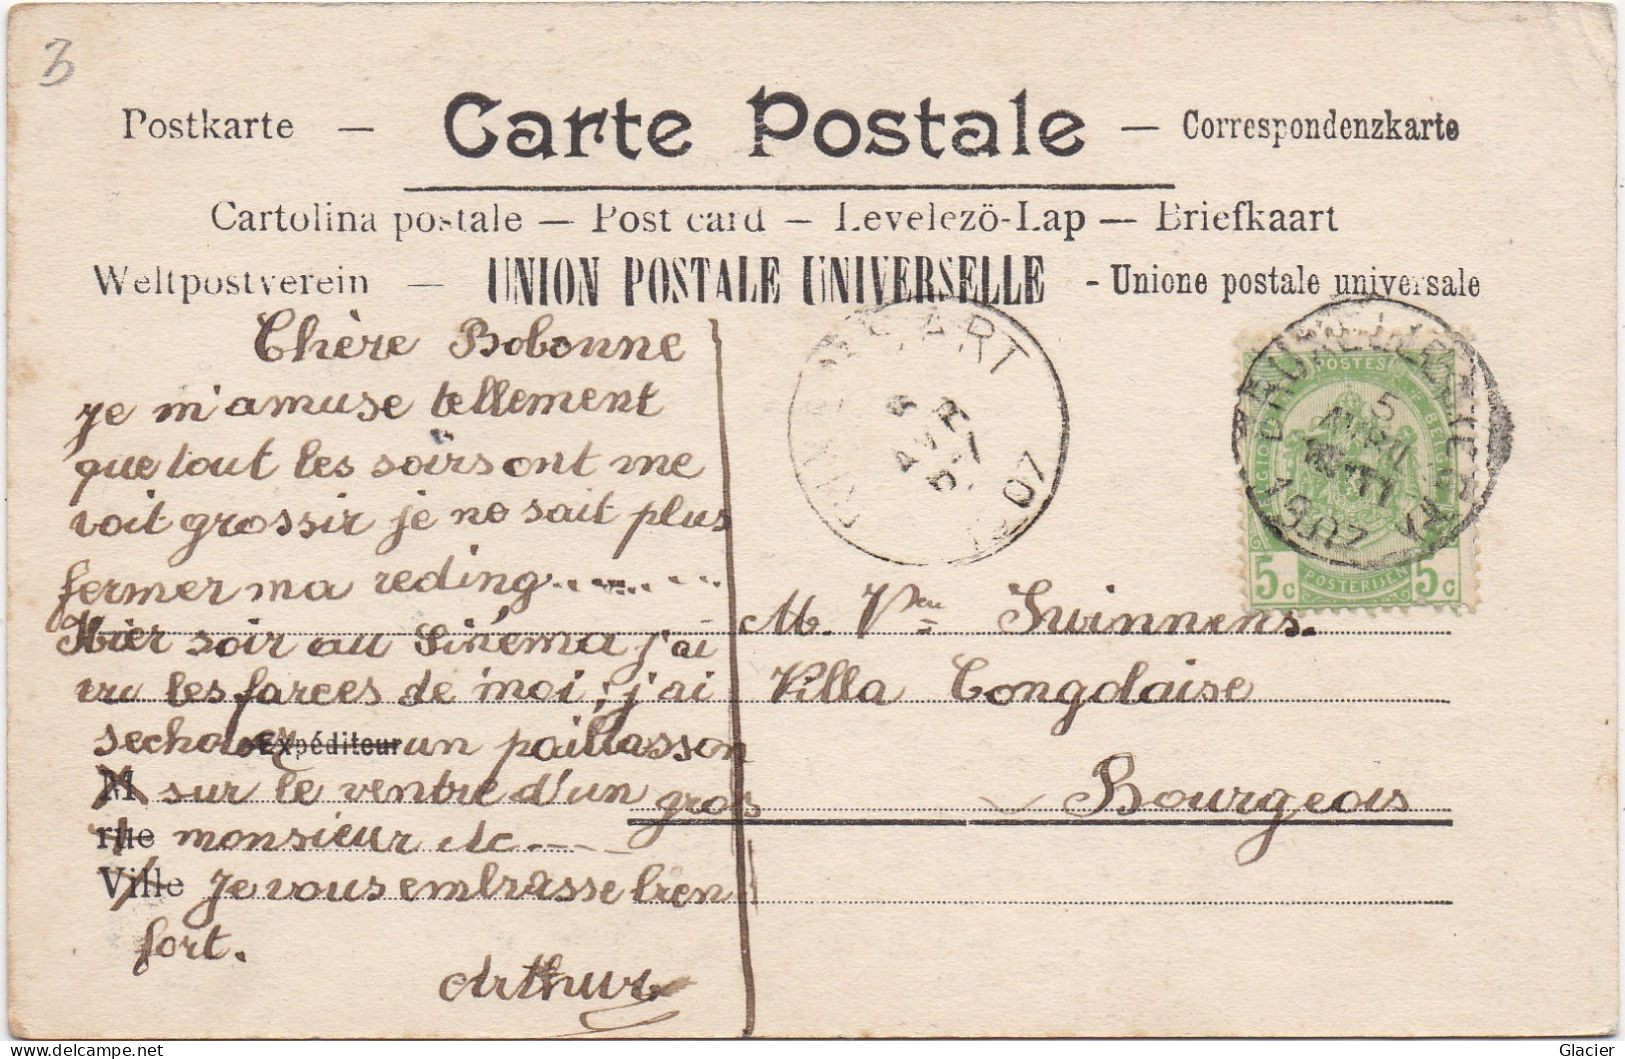 3
Postkarte — Carte Postale — Correspondenzkarte
Cartolina postale — Post card — Levelezö-Lap — Briefkaart
Weltpostverein — UNION POSTALE UNIVERSELLE - Unione postale universale
Chère Bobonne
je m'amuse tellement
que tout les soirs ont me
voit grossir je ne sait plus
fermer ma reding........
Hier soir au Sinéma j'ai
vu les farces de moi; j'ai
Expéditeur un paillasson
M sur le ventre d'un gros
rue monsieur etc----
Ville Je vous embrasse bien
fort.
Arthur
ART
07
BRUXELLES
5
AVRIL
1907
POSTES
5c POSTERIJEN 5c
M. Veu Swinnens.
Villa Congolaise
Bourgeois
Glacier